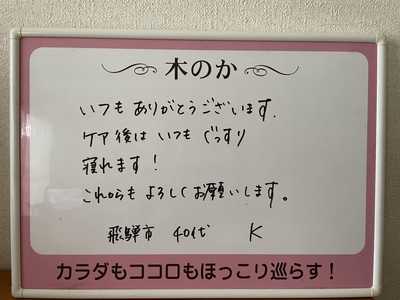 木のか
いつもありがとうございます.
ケア後はいつもぐっすり
寝れます!
これからもよろしくお願いします。
飛騨市 40代 K
カラダもココロもほっこり巡らす!